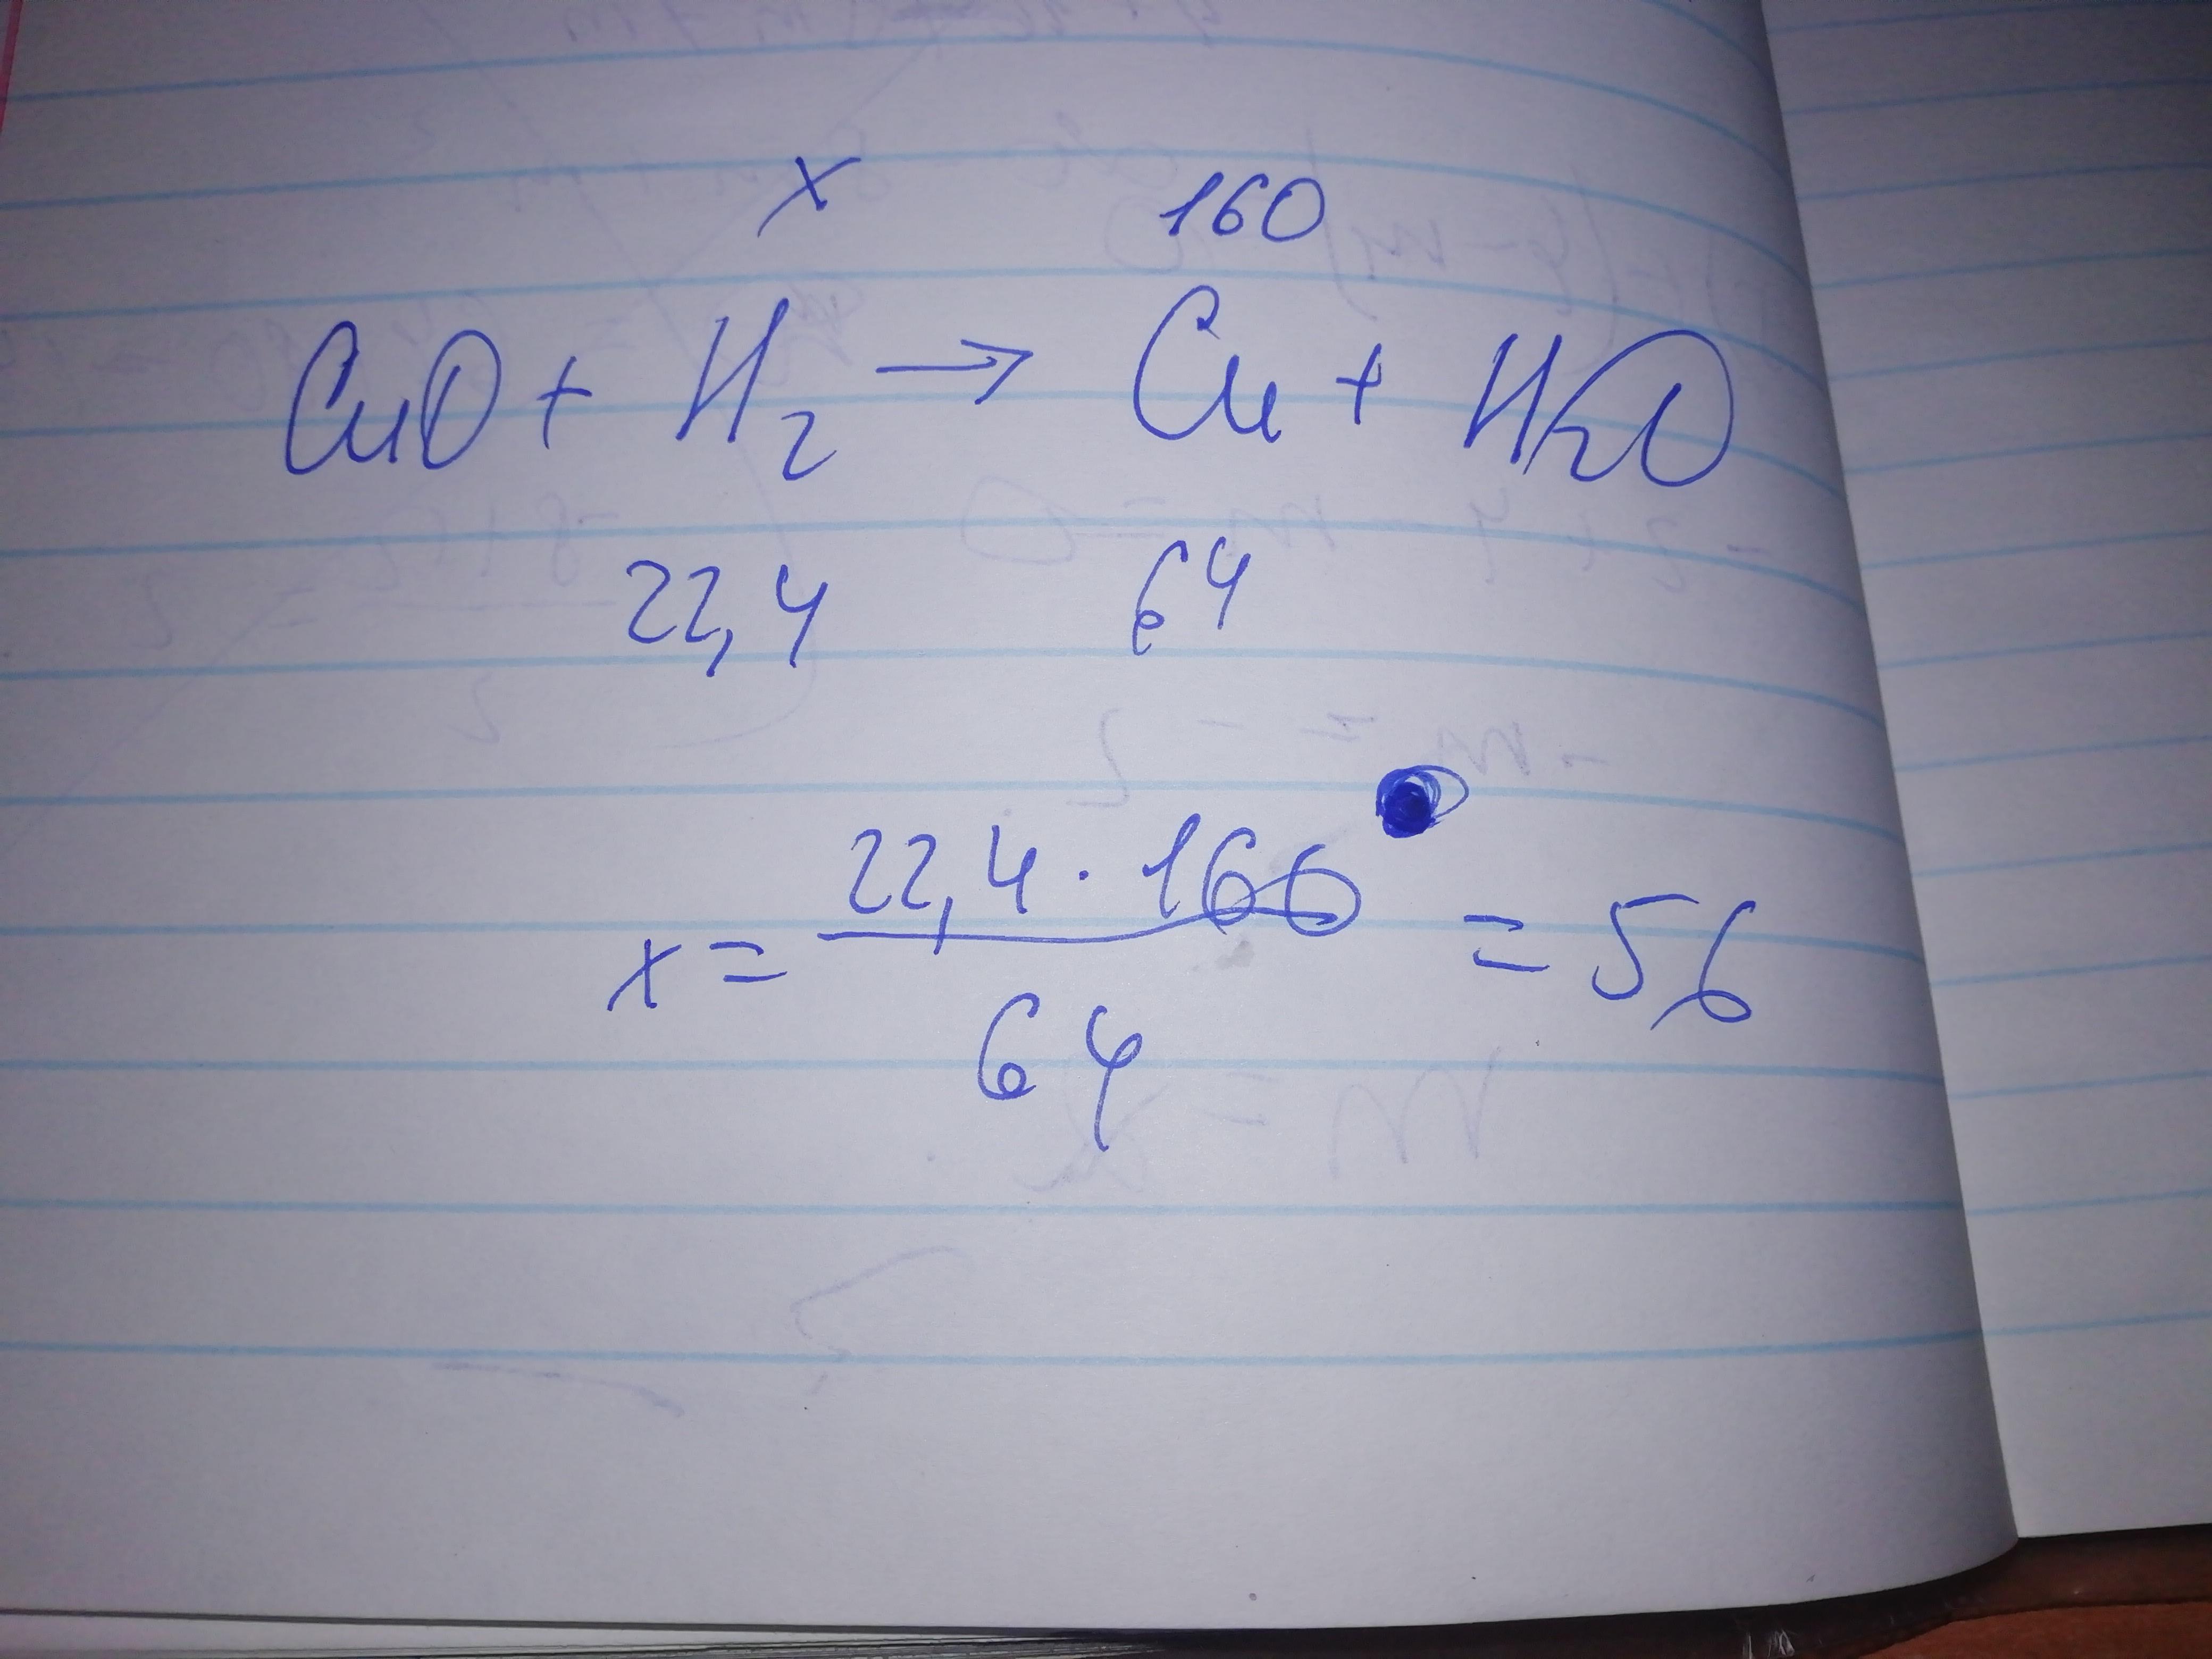 x 160
CuO + H2 → Cu + H2O
22,4 64
x = 22,4 · 160 / 64 = 56